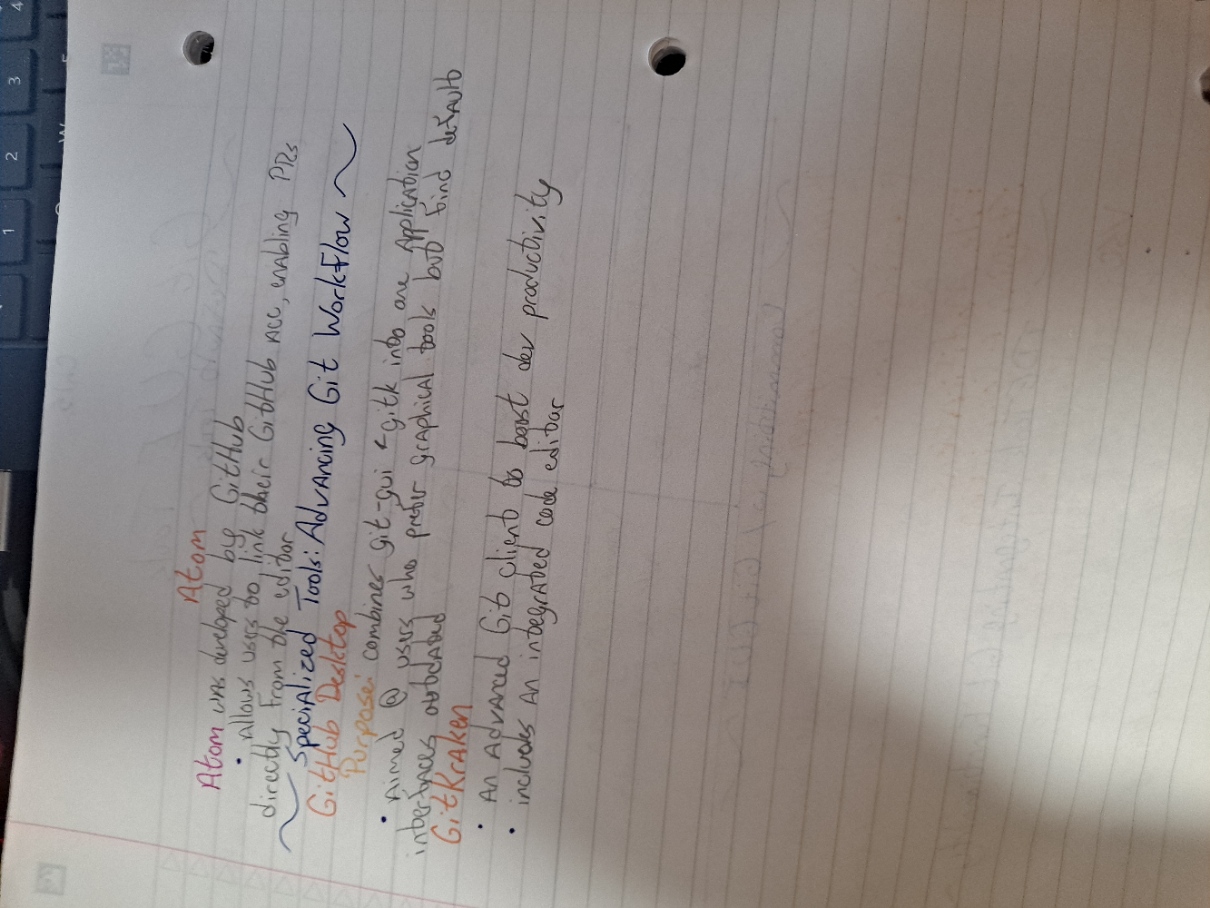 1 2 3 4
W
Atom
Atom was developed by GitHub
• Allows users to link their GitHub Acc, enabling PRs
directly from the editor
~ Specialized Tools: Advancing Git Workflow ~
GitHub Desktop
Purpose: combines git-gui & gitk into one Application
• Aimed @ users who prefer graphical tools but find default
interfaces outdated
GitKraken
• An Advanced Git client to boost dev productivity
• includes An integrated code editor